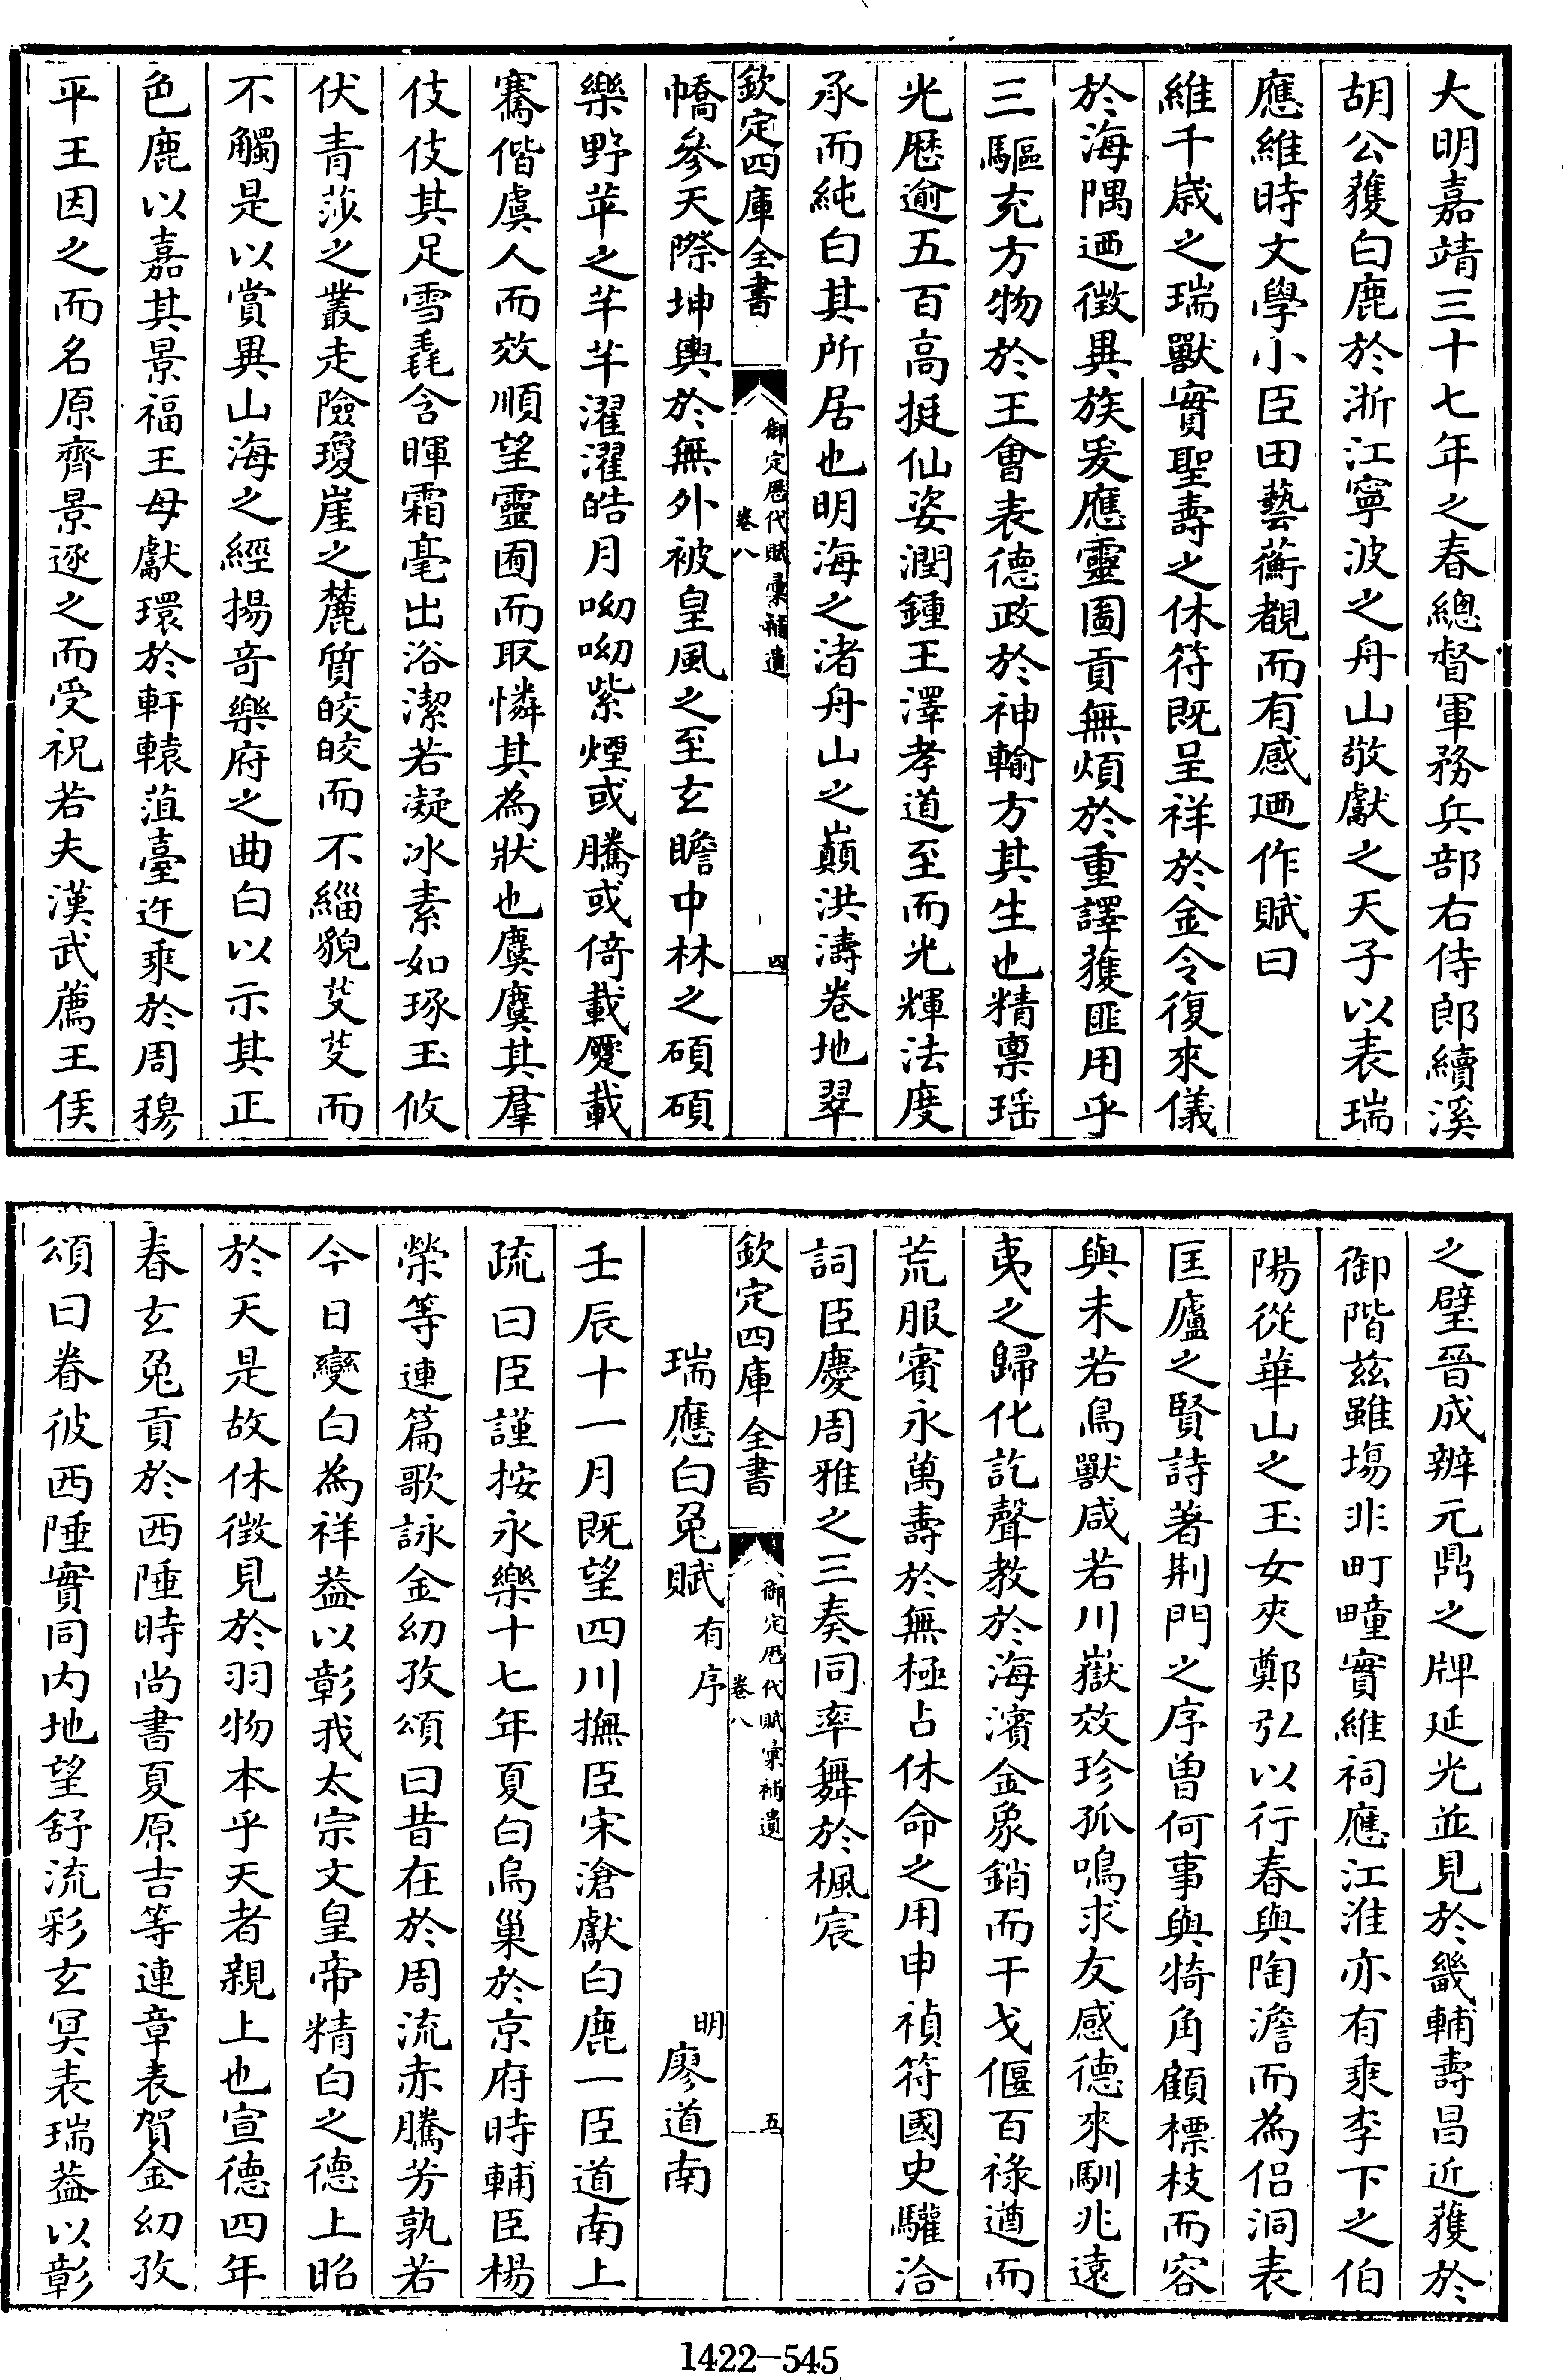 大明嘉靖三十七年之春總督軍務兵部右侍郎續溪
胡公獲白鹿於浙江寧波之舟山敬獻之天子以表瑞
應維時文學小臣田藝蘅覩而有感迺作賦曰
維千歲之瑞獸實聖壽之休符既呈祥於金令復來儀
於海隅迺徵異族爰應靈圖貢無煩於重譯獲匪用乎
三驅充方物於王會表德政於神輸方其生也精稟瑶
光厯逾五百高挺仙姿潤鍾王澤孝道至而光輝法度
承而純白其所居也明海之渚舟山之巔洪濤卷地翠
欽定四庫全書
御定厯代賦彙補遺
卷八
四
幯參天際坤輿於無外被皇風之至玄瞻中林之碩碩
樂野苹之芊芊濯濯皓月呦呦紫煙或騰或倚載麌載
騫偕虞人而效順望靈囿而取憐其為狀也麌麌其羣
伎伎其足雪毳含暉霜毫出浴潔若凝冰素如琢玉攸
伏青莎之叢走險瓊崖之麓質皎皎而不緇貌艾艾而
不觸是以賞異山海之經揚竒樂府之曲白以示其正
色鹿以嘉其景福王母獻環於軒轅菹臺迕乘於周穆
平王因之而名原齊景逐之而受祝若夫漢武薦王侯
之璧晉成辨元鼎之牌延光並見於畿輔壽昌近獲於
御階兹雖塲非町疃實維祠應江淮亦有乘李下之伯
陽從華山之玉女夾鄭弘以行春與陶澹而為侣洞表
匡廬之賢詩著荆門之序曾何事與犄角顧標枝而容
與未若鳥獸咸若川嶽效珍孤鳴求友感德來馴兆遠
夷之歸化訖聲教於海濱金象銷而干戈偃百祿遒而
荒服賓永萬壽於無極占休命之用申禎符國史驩洽
詞臣慶周雅之三奏同率舞於楓宸
欽定四庫全書
御定厯代賦彙補遺
卷八
五
瑞應白兔賦有序 明廖道南
壬辰十一月既望四川撫臣宋滄獻白鹿一臣道南上
疏曰臣謹按永樂十七年夏白烏巢於京府時輔臣楊
榮等連篇歌詠金幼孜頌曰昔在於周流赤騰芳孰若
今日變白為祥葢以彰我太宗文皇帝精白之德上昭
於天是故休徵見於羽物本乎天者親上也宣德四年
春玄兔貢於西陲時尚書夏原吉等連章表賀金幼孜
頌曰眷彼西陲實同内地望舒流彩玄冥表瑞葢以彰
1422-545